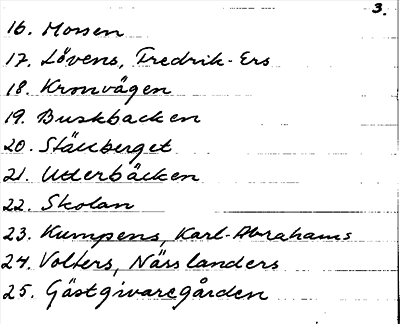 3.
16. Mossen
17. Lövens, Fredrik-Ers
18. Kronvägen
19. Buskbacken
20. Stäcberget
21. Utterbäcken
22. Skolan
23. Kumpens, Karl-Abrahams
24. Volters, Nässlanders
25. Gästgivaregården